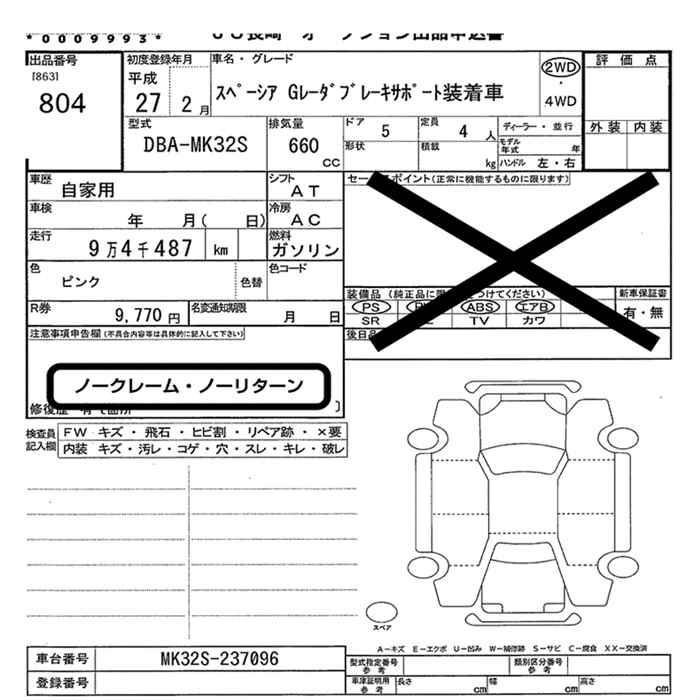 * 0 0 0 9 9 9 3 *
出品番号
[863]
804
初度登録年月
平成
27 2 月
車名・グレード
スペーシア Gレーダブレーキサポート装着車
2WD
・
4WD
評価点
外装 内装
型式
DBA-MK32S
排気量
660
CC
ドア 5
定員 4 人
形状
積載 kg
ディーラー・並行
モデル年式 年
ハンドル 左・右
車歴 自家用
シフト AT
車検 年 月( 日)
冷房 AC
走行 9万4千487 km
燃料 ガソリン
色 ピンク
色替
色コード
R券 9,770円
名変通知期限 月 日
ポイント(正常に機能するものに限ります)
装備品 (純正品に つけてください)
PS ABS エアB
SR TV カワ
新車保証書
有・無
後日品
注意事項申告欄(不具合内容等は具体的に記入して下さい)
ノークレーム・ノーリターン
検査員記入欄
FW キズ・飛石・ヒビ割・リペア跡・×要
内装 キズ・汚レ・コゲ・穴・スレ・キレ・破レ
スペア
A－キズ E－エクボ U－凹み W－補修跡 S－サビ C－腐食 XX－交換済
車台番号 MK32S-237096
登録番号
型式指定番号 参考
類別区分番号 参考
車庫証明用 参考
長さ cm
幅 cm
高さ cm